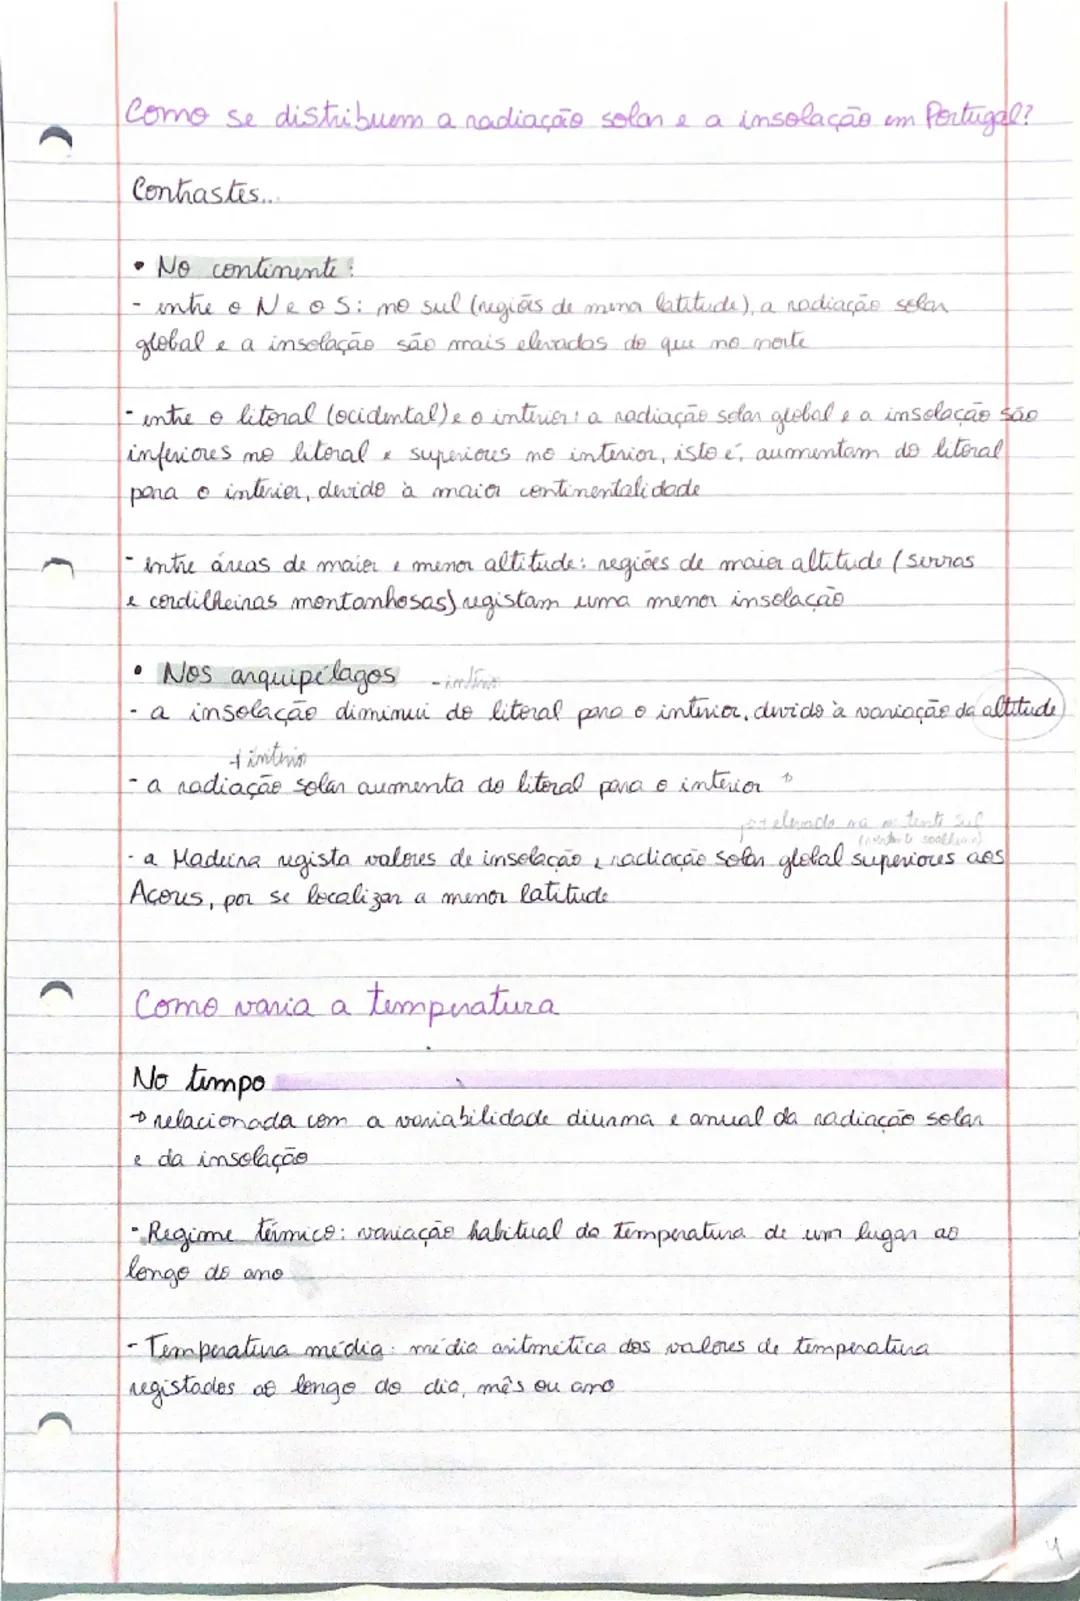 Como se distribuem a radiação solar e a insolação em Portugal?
Contrastes...
• No continente:
- entre o N e o S: no sul (regiões de menor latitude), a radiação solar
global e a insolação são mais elevadas do que no norte
- entre o litoral (ocidental) e o interior: a radiação solar global e a insolação são
inferiores no litoral e superiores no interior, isto é, aumentam do litoral
para o interior, devido à maior continentalidade
- entre áreas de maior e menor altitude: regiões de maior altitude (serras
e cordilheiras montanhosas) registam uma menor insolação
• Nos arquipélagos
- a insolação diminui do litoral para o interior, devido à variação da altitude
+ interior
- a radiação solar aumenta do litoral para o interior
+ elevada na Sul
- a Madeira regista valores de insolação e radiação solar global superiores aos
Açores, por se localizar a menor latitude
Como varia a temperatura
No tempo
→ relacionada com a variabilidade diurna e anual da radiação solar
e da insolação
- Regime térmico: variação habitual da temperatura de um lugar ao
longo do ano
- Temperatura média: média aritmética dos valores de temperatura
registados ao longo do dia, mês ou ano
4